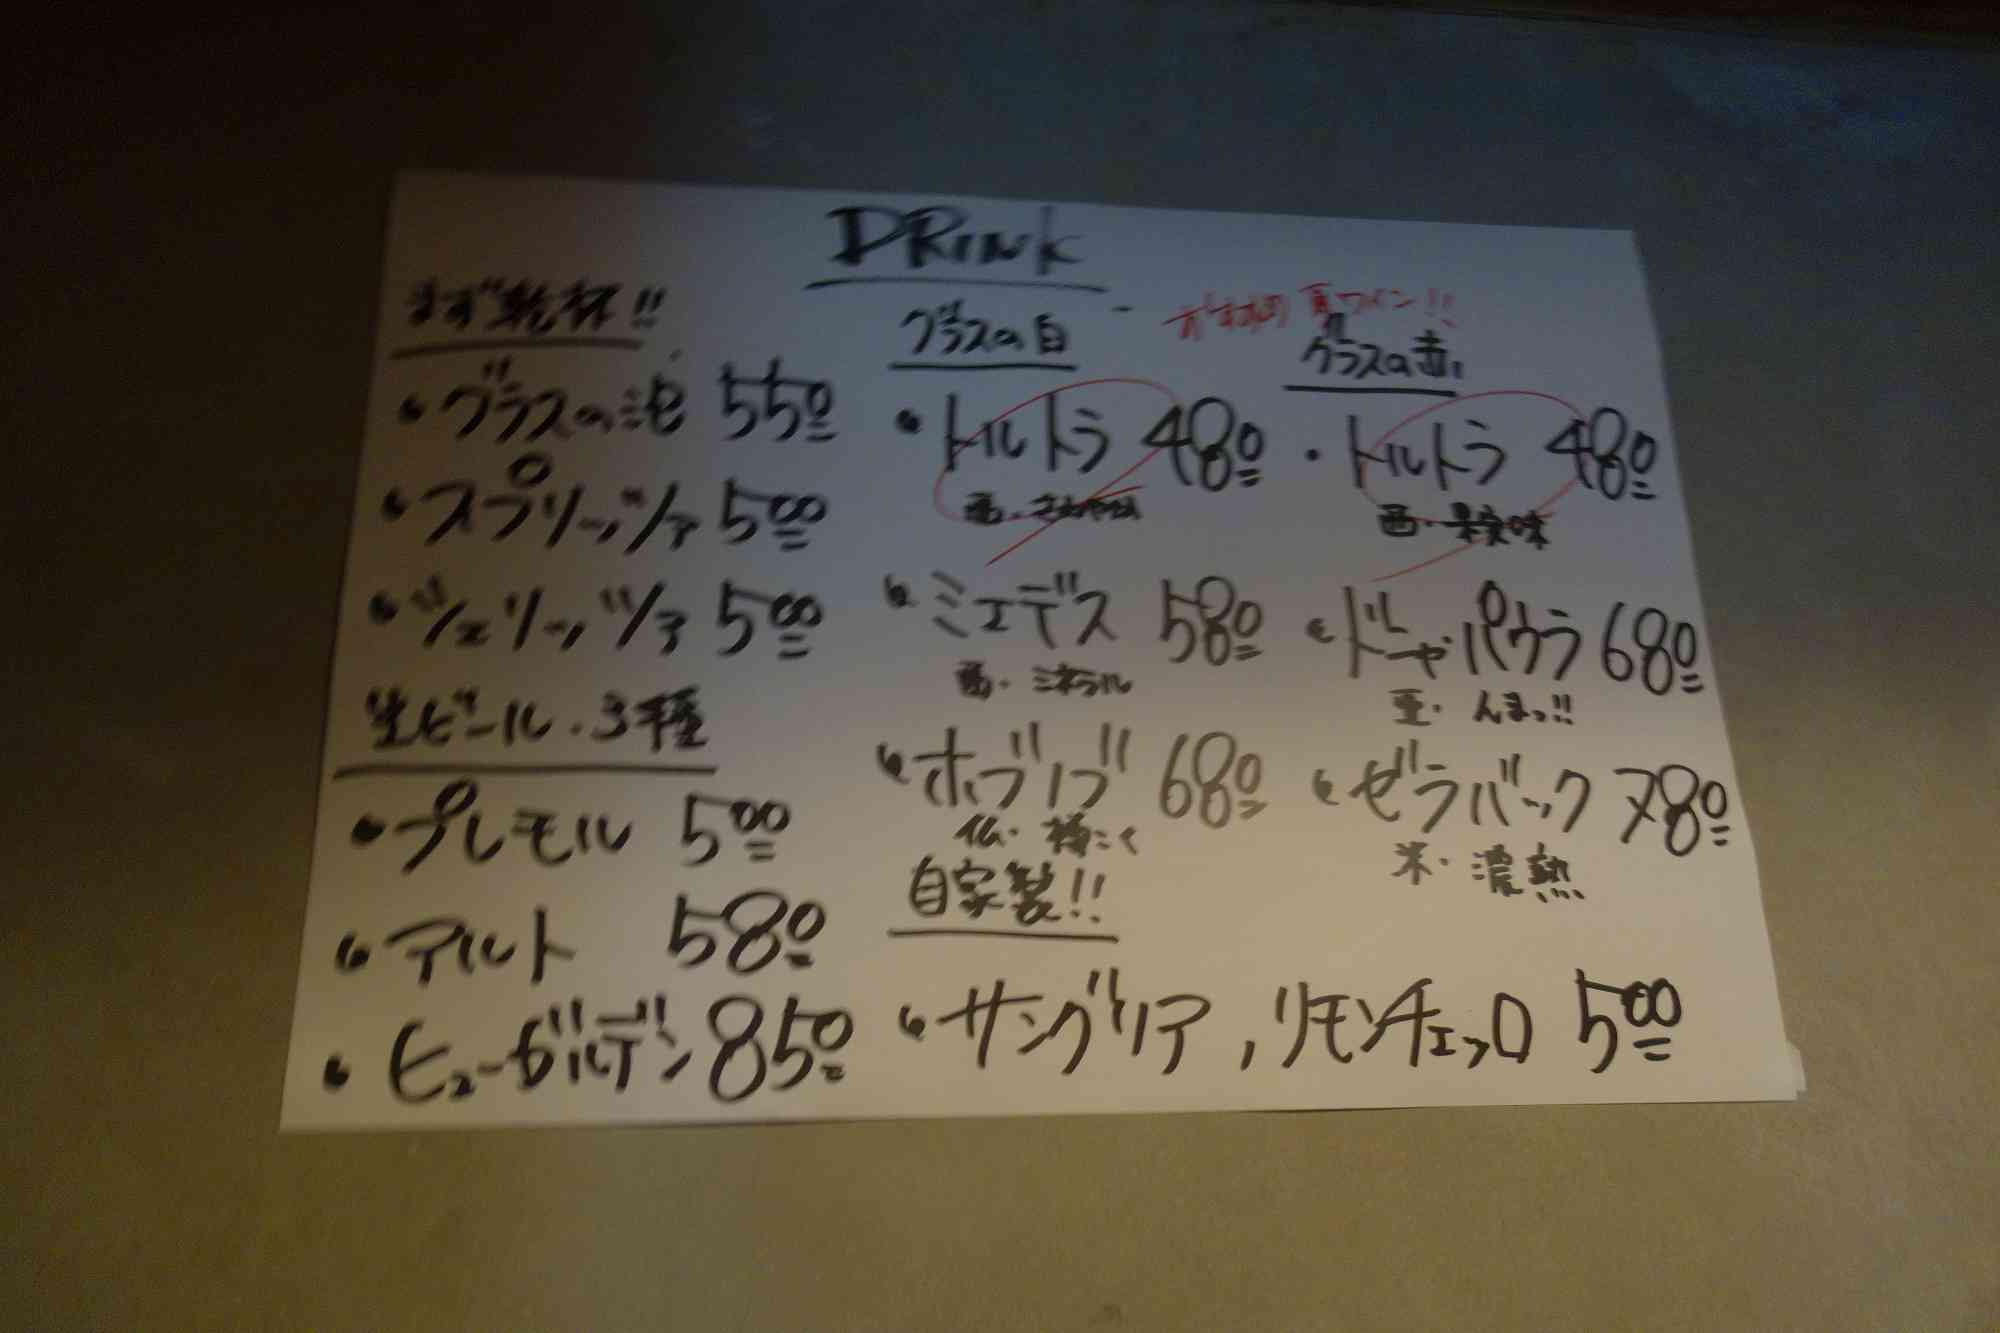 DRINK
まず乾杯!!
・グラスの泡 550
・スプリッツァ 500
・ジェリッツァ 500
生ビール・3種
・プレモル 500
・アルト 580
・ヒューガルデン 850
グラスの白
・トルトラ 480
西・さわやか
・ミェデス 580
西・ミネラル
・ホブノブ 680
仏・樽こく
おすすめ 夏ワイン!!
グラスの赤
・トルトラ 480
西・果実味
・ドーニャパウラ 680
亜・んまっ!!
・ゼラバック 780
米・濃熟
自家製!!
・サングリア,リモンチェッロ 500